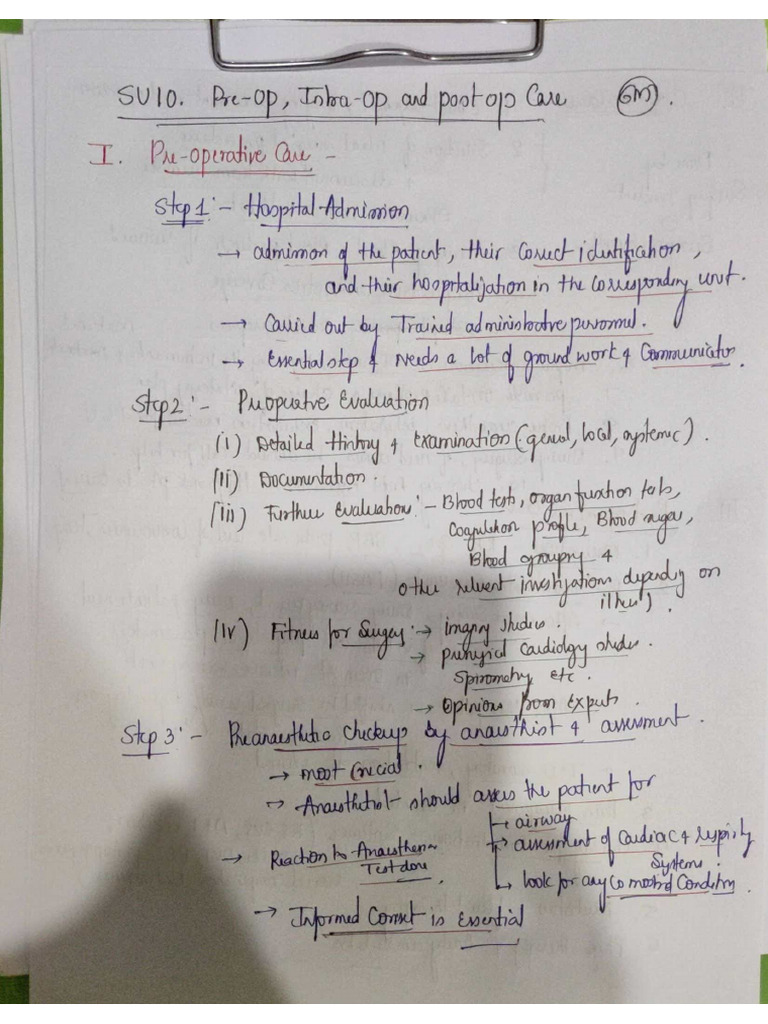 SU10. Pre-op, Intra-op and post op Care
I. Pre-operative Care -
Step 1 :- Hospital-Admission
→ admission of the patient, their correct identification,
and their hospitalization in the corresponding unit.
→ Carried out by Trained administrative personnel.
→ Essential step & Needs a lot of ground work & Communication.
Step 2 :- Preoperative Evaluation
(i) Detailed History & Examination (general, local, systemic).
(ii) Documentation.
(iii) Further Evaluation :- Blood tests, organ function tests,
Coagulation profile, Blood sugar,
Blood grouping &
other relevent investigations depending on
illness).
(iv) Fitness for Surgery :→ imaging studies.
→ presurgical Cardiology studies.
Spirometry etc.
→ Opinions from Experts.
Step 3 :- Preanaesthetic Checkup by anaesthist & assessment.
→ most Crucial.
→ Anaesthetist should assess the patient for
→ airway
→ assessment of Cardiac & respiratory
Systems.
→ look for any Co morbid Condition.
→ Reaction to Anaesthesia
Test done.
→ Informed Consent is Essential